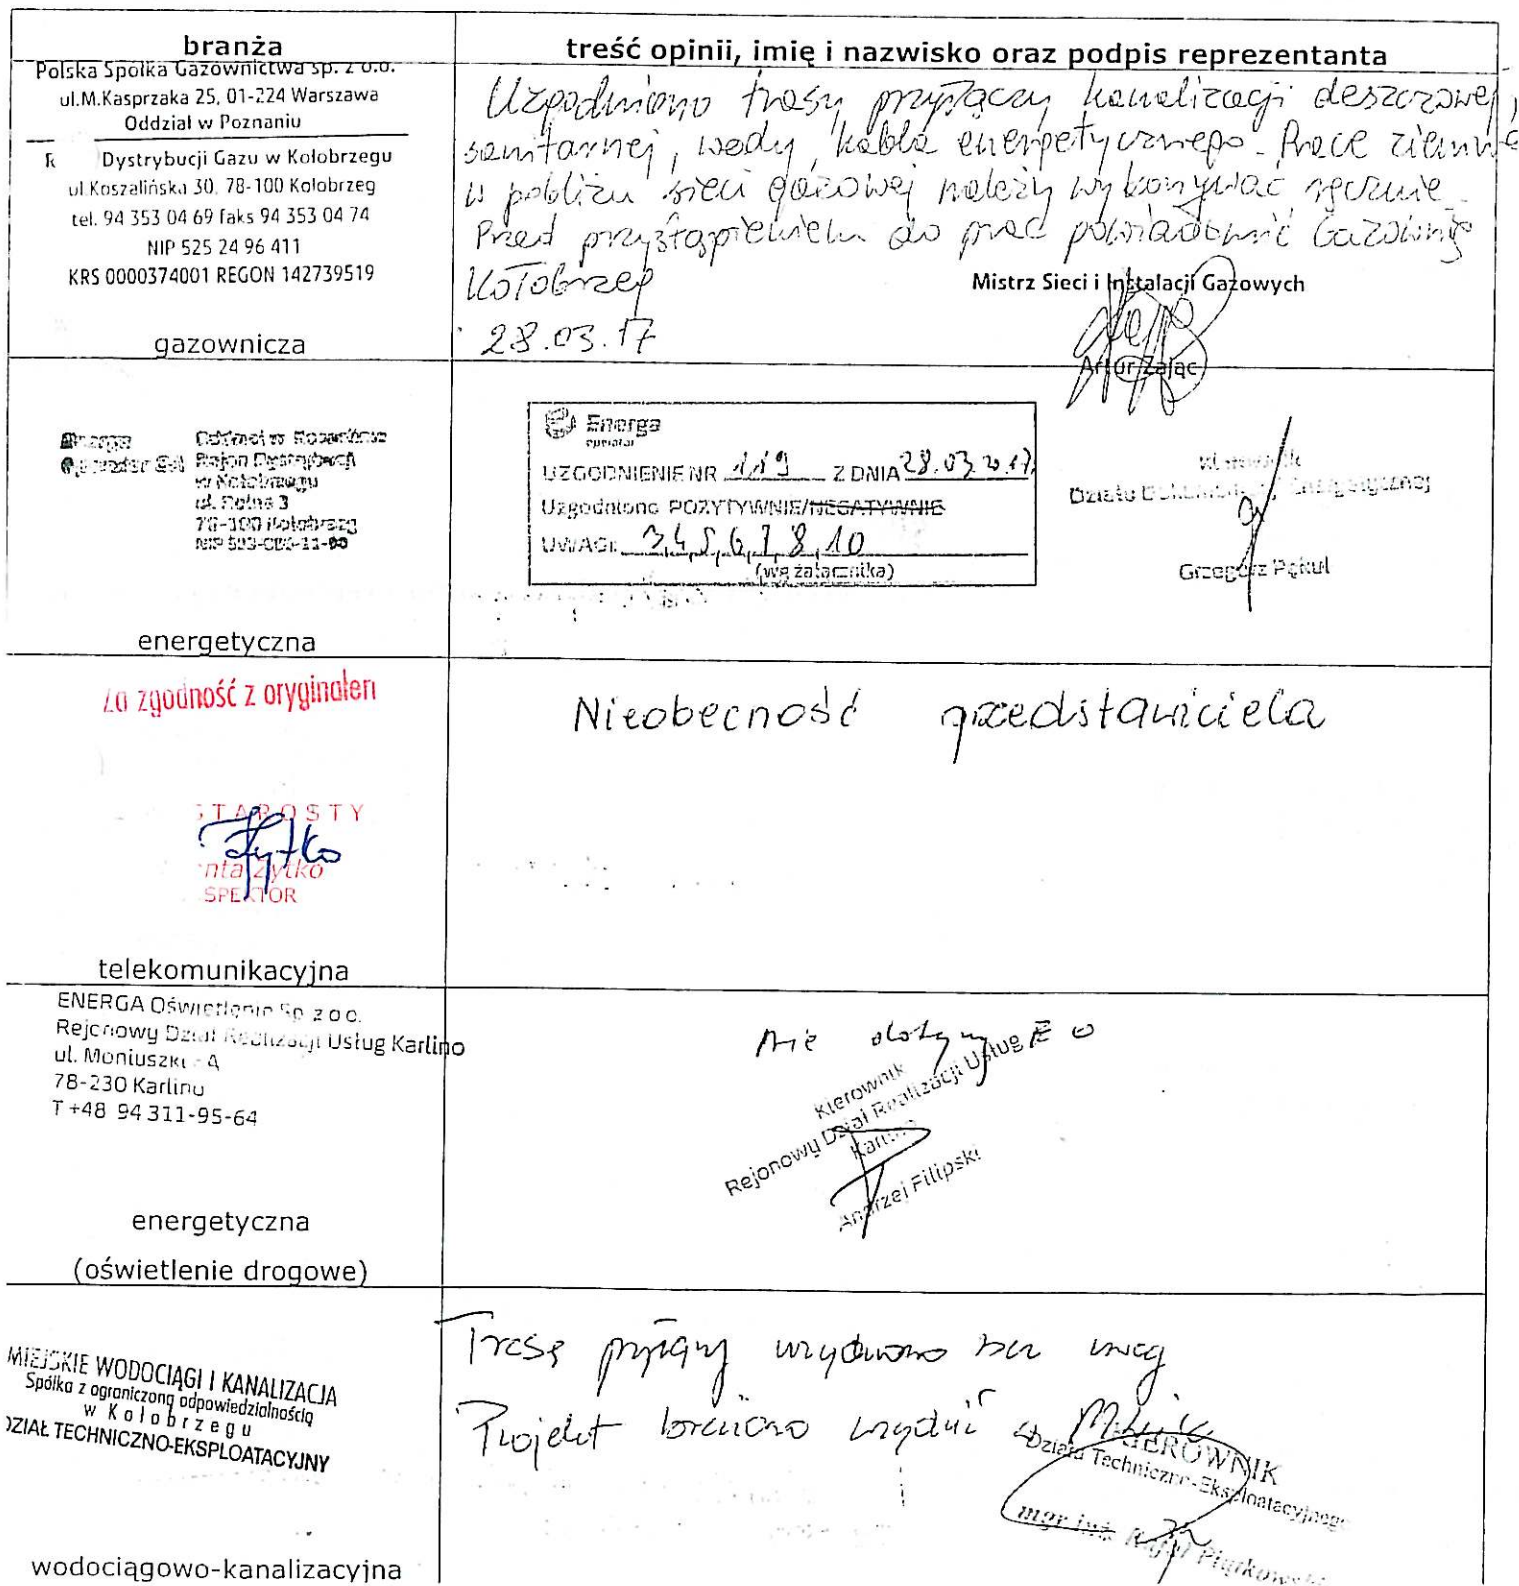 branża
treść opinii, imię i nazwisko oraz podpis reprezentanta
Polska Spółka Gazownictwa sp. z o.o.
ul.M.Kasprzaka 25, 01-224 Warszawa
Oddział w Poznaniu
R Dystrybucji Gazu w Kołobrzegu
ul.Koszalińska 30, 78-100 Kołobrzeg
tel. 94 353 04 69 faks 94 353 04 74
NIP 525 24 96 411
KRS 0000374001 REGON 142739519
gazownicza
Uzgodniono trasy przyłączy kanalizacji deszczowej,
sanitarnej, wody, kabla energetycznego. Prace ziemne
w pobliżu sieci gazowej należy wykonywać ręcznie.
Przed przystąpieniem do prac powiadomić Gazownię
Kołobrzeg
28.03.17
Mistrz Sieci i Instalacji Gazowych
Artur Zając
Energa Oddział w Koszalinie
Operator SA Rejon Dystrybucji
w Kołobrzegu
ul. Rolna 3
78-100 Kołobrzeg
energetyczna
Energa
operator
UZGODNIENIE NR 119 Z DNIA 28.03.2017
Uzgodniono POZYTYWNIE/NEGATYWNIE
UWAGI: 3,4,5,6,7,8,10
(wg załącznika)
Kierownik
Działu Dokumentacji Energetycznej
Grzegorz Pękul
Za zgodność z oryginałem
STAROSTY
nta Żytko
SPEKTOR
telekomunikacyjna
Nieobecność przedstawiciela
ENERGA Oświetlenie Sp. z o.o.
Rejonowy Dział Realizacji Usług Karlino
ul. Moniuszki A
78-230 Karlino
T +48 94 311-95-64
energetyczna
(oświetlenie drogowe)
Nie dotyczy E O
Kierownik
Rejonowy Dział Realizacji Usług
Karlino
Andrzej Filipski
MIEJSKIE WODOCIĄGI I KANALIZACJA
Spółka z ograniczoną odpowiedzialnością
w Kołobrzegu
DZIAŁ TECHNICZNO-EKSPLOATACYJNY
wodociągowo-kanalizacyjna
Trasę przyłączy uzgodniono bez uwag
Projekt branżowo uzgodnić w MWiK
KIEROWNIK
Działu Techniczno-Eksploatacyjnego
mgr inż. Rafał Piątkowski